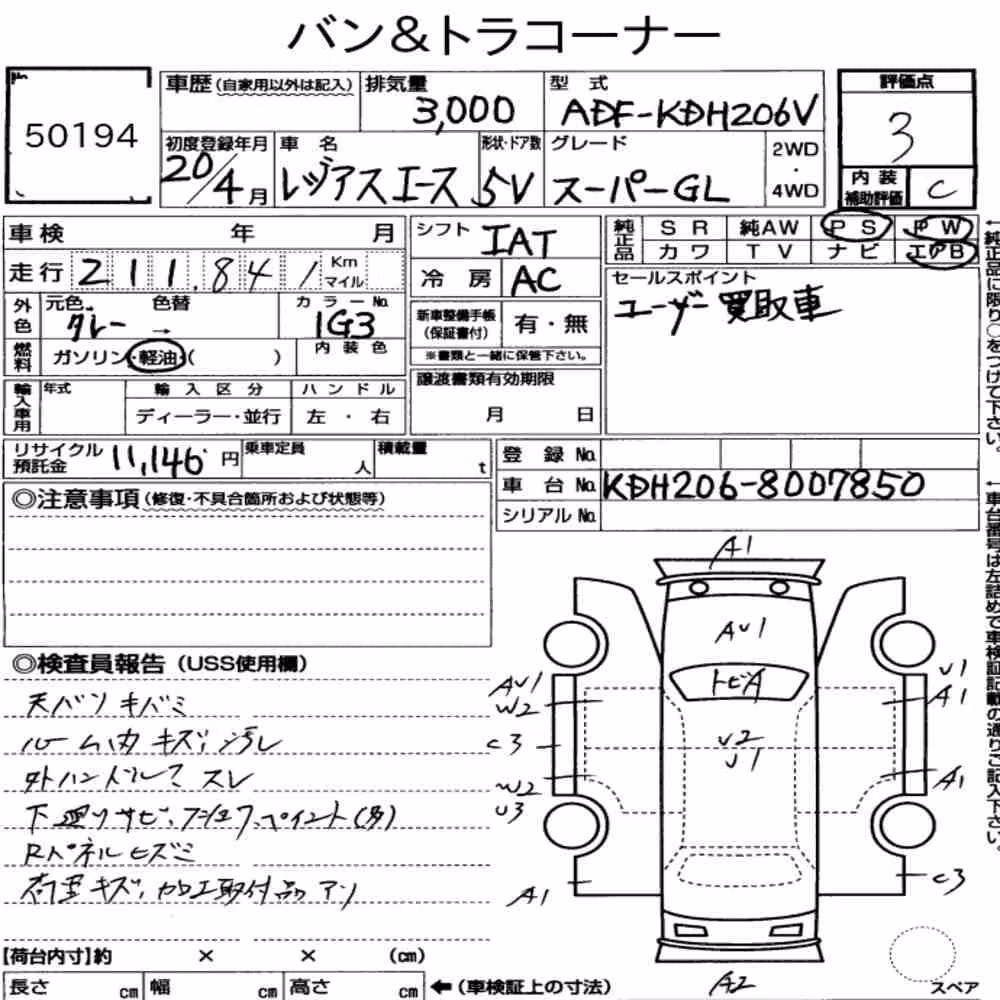 バン&トラコーナー
50194
車歴(自家用以外は記入)
排気量
3,000
型式
ADF-KDH206V
評価点
3
初度登録年月
20/4月
車名
レジアスエース
形状・ドア数
5V
グレード
スーパーGL
2WD
・
4WD
内装
補助評価
C
車検 年 月
シフト
IAT
純正品
SR 純AW PS PW
カワ TV ナビ エアB
走行 211.84 1 Km マイル
冷房
AC
セールスポイント
ユーザー買取車
外色
元色 グレー
色替 →
カラーNo.
1G3
新車整備手帳
(保証書付)
有・無
※書類と一緒に保管下さい。
燃料
ガソリン・軽油・( )
内装色
譲渡書類有効期限
月 日
輸入車用
年式
輸入区分
ハンドル
ディーラー・並行
左・右
←純正品に限り○をつけて下さい。
リサイクル
預託金
11,146円
乗車定員
人
積載量
t
登録No.
車台No. KDH206-8007850
シリアルNo.
←車台番号は左詰めで車検証記載の通りご記入下さい。
◎注意事項(修復・不具合箇所および状態等)
A1
AU1
トビA
U2
U1
AU1
W2
C3
W2
U3
A1
U1
A1
A1
C3
A2
◎検査員報告(USS使用欄)
天バリキバミ
ルーム内キズ、汚レ
外ハンドルスレ
下廻りサビ、
ペイント(多)
Rパネルヒズミ
荷室キズ、加工取付品のアリ
【荷台内寸】約 × × (cm)
長さ cm 幅 cm 高さ cm ←(車検証上の寸法)
スペア